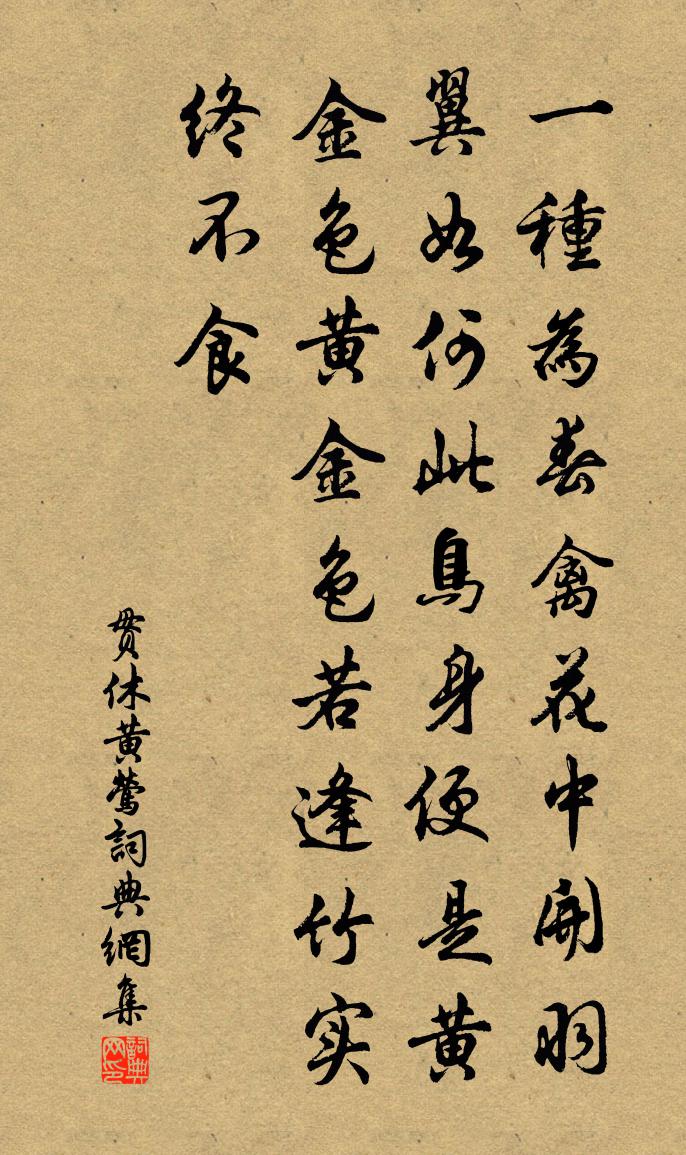 一種為春禽花中開羽
翼如何此鳥身便是黃
金色黃金色若逢竹实
終不食
贯休黃鶯詞典網集
詞典网印